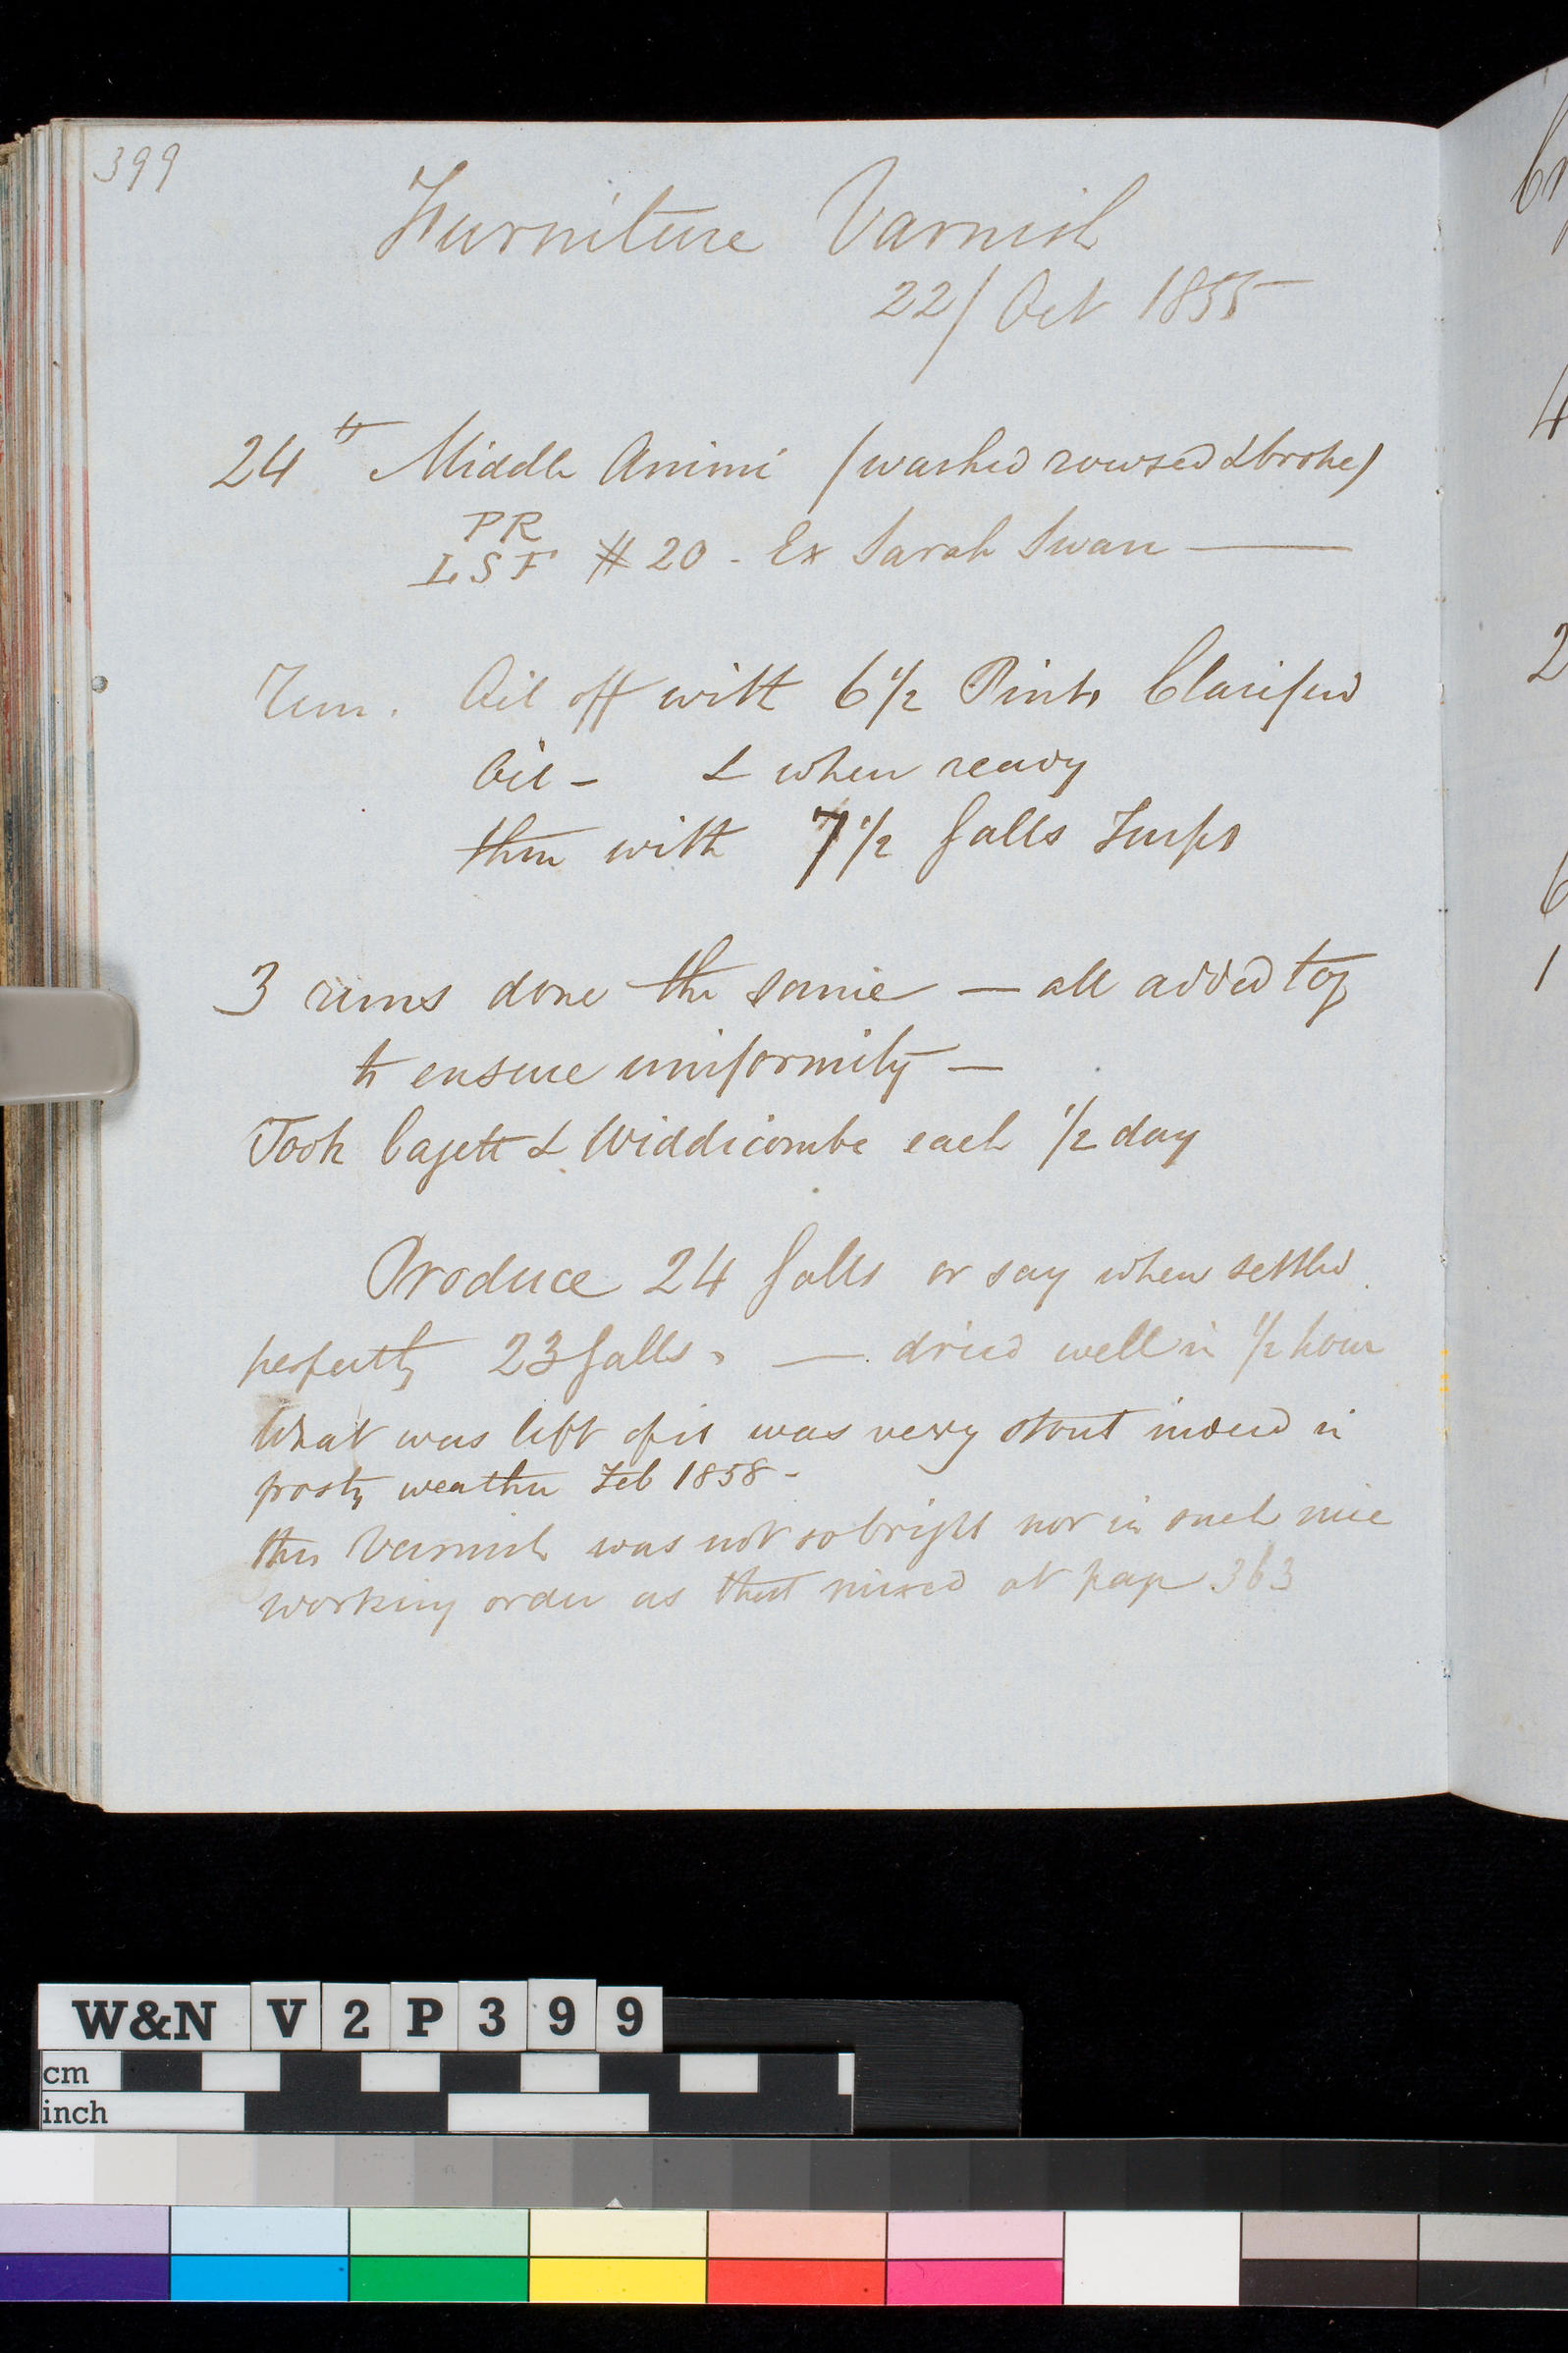 399
Furniture Varnish
22/ Oct 1855
24 lb Middle Animi (washed rowsed & broke)
PR
LSF # 20 - Ex Sarah Swan —
Run. Oil off with 6 1/2 Pints Clarified
Oil - & when ready
thin with 7 1/2 Galls Turps
3 runs done the same — all added tog
to ensure uniformity —
Took & Widdicombe each 1/2 day
Produce 24 Galls or say when settled
perfectly 23 Galls. — dried well in 1/2 hour
What was left of it was very stout indeed in
frosty weather Feb 1858 -
this Varnish was not so bright nor in such nice
working order as that mixed at page 363
W&N V2P399
cm
inch